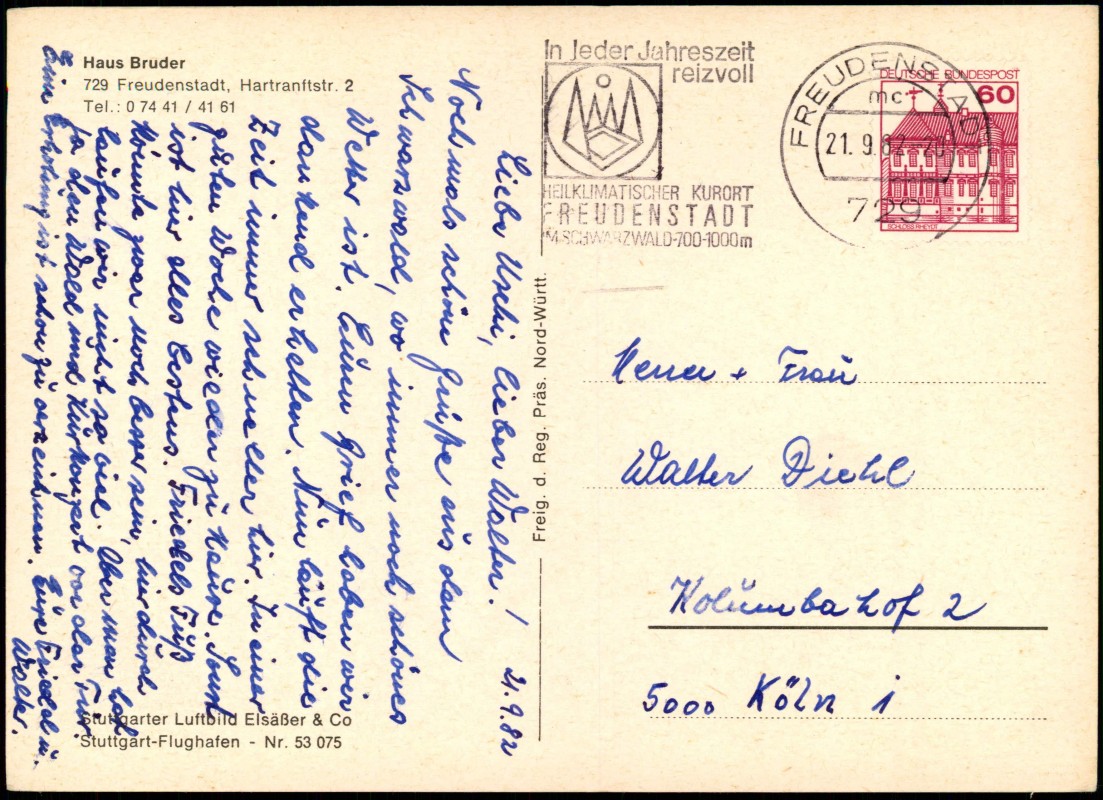 Haus Bruder
729 Freudenstadt, Hartranftstr. 2
Tel.: 0 74 41 / 41 61
In jeder Jahreszeit
reizvoll
HEILKLIMATISCHER KURORT
FREUDENSTADT
IM SCHWARZWALD·700-1000m
FREUDENSTADT
mc
21. 9.82-20
729
DEUTSCHE BUNDESPOST
60
SCHLOSS RHEYDT
21.9.82
Liebe Uschi, lieber Walter!
Nochmals schöne Grüße aus dem
Schwarzwald, wo immer noch schönes
Wetter ist. Euren Brief haben wir
dankend erhalten. Nun läuft die
Zeit immer schneller hin. In einer
guten Woche wieder zu Hause. Sonst
ist hier alles bestens. Friedels Fuß
könnte zwar noch besser sein, hindurch
laufen wir nicht so viel. Aber man hat
ja den Wald und Kurkonzert vor der Tür.
Eine Erholung ist schon zu verzeichnen. Eure Friedel u.
Walter.
Freig. d. Reg. Präs. Nord-Württ.
Herrn + Frau
Walter Diehl
Kolumbahof 2
5000 Köln 1
Stuttgarter Luftbild Elsäßer & Co
Stuttgart-Flughafen - Nr. 53 075